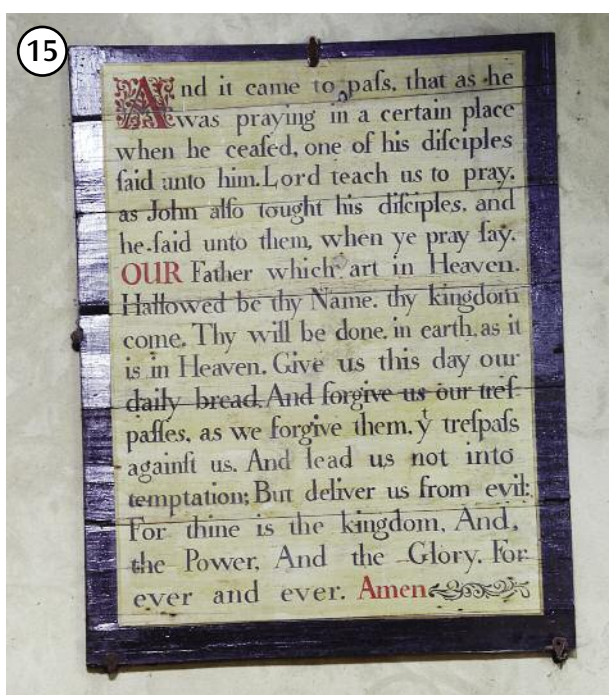 15
And it came to paſs, that as he
was praying in a certain place
when he ceaſed, one of his diſciples
ſaid unto him. Lord teach us to pray,
as John alſo tought his diſciples, and
he ſaid unto them, when ye pray ſay.
OUR Father which art in Heaven.
Hallowed be thy Name. thy kingdom
come. Thy will be done. in earth. as it
is in Heaven. Give us this day our
daily bread. And forgive us our treſ
paſſes, as we forgive them. yͭ treſpaſs
againſt us. And lead us not into
temptation; But deliver us from evil:
For thine is the kingdom. And,
the Power. And the Glory. For
ever and ever. Amen